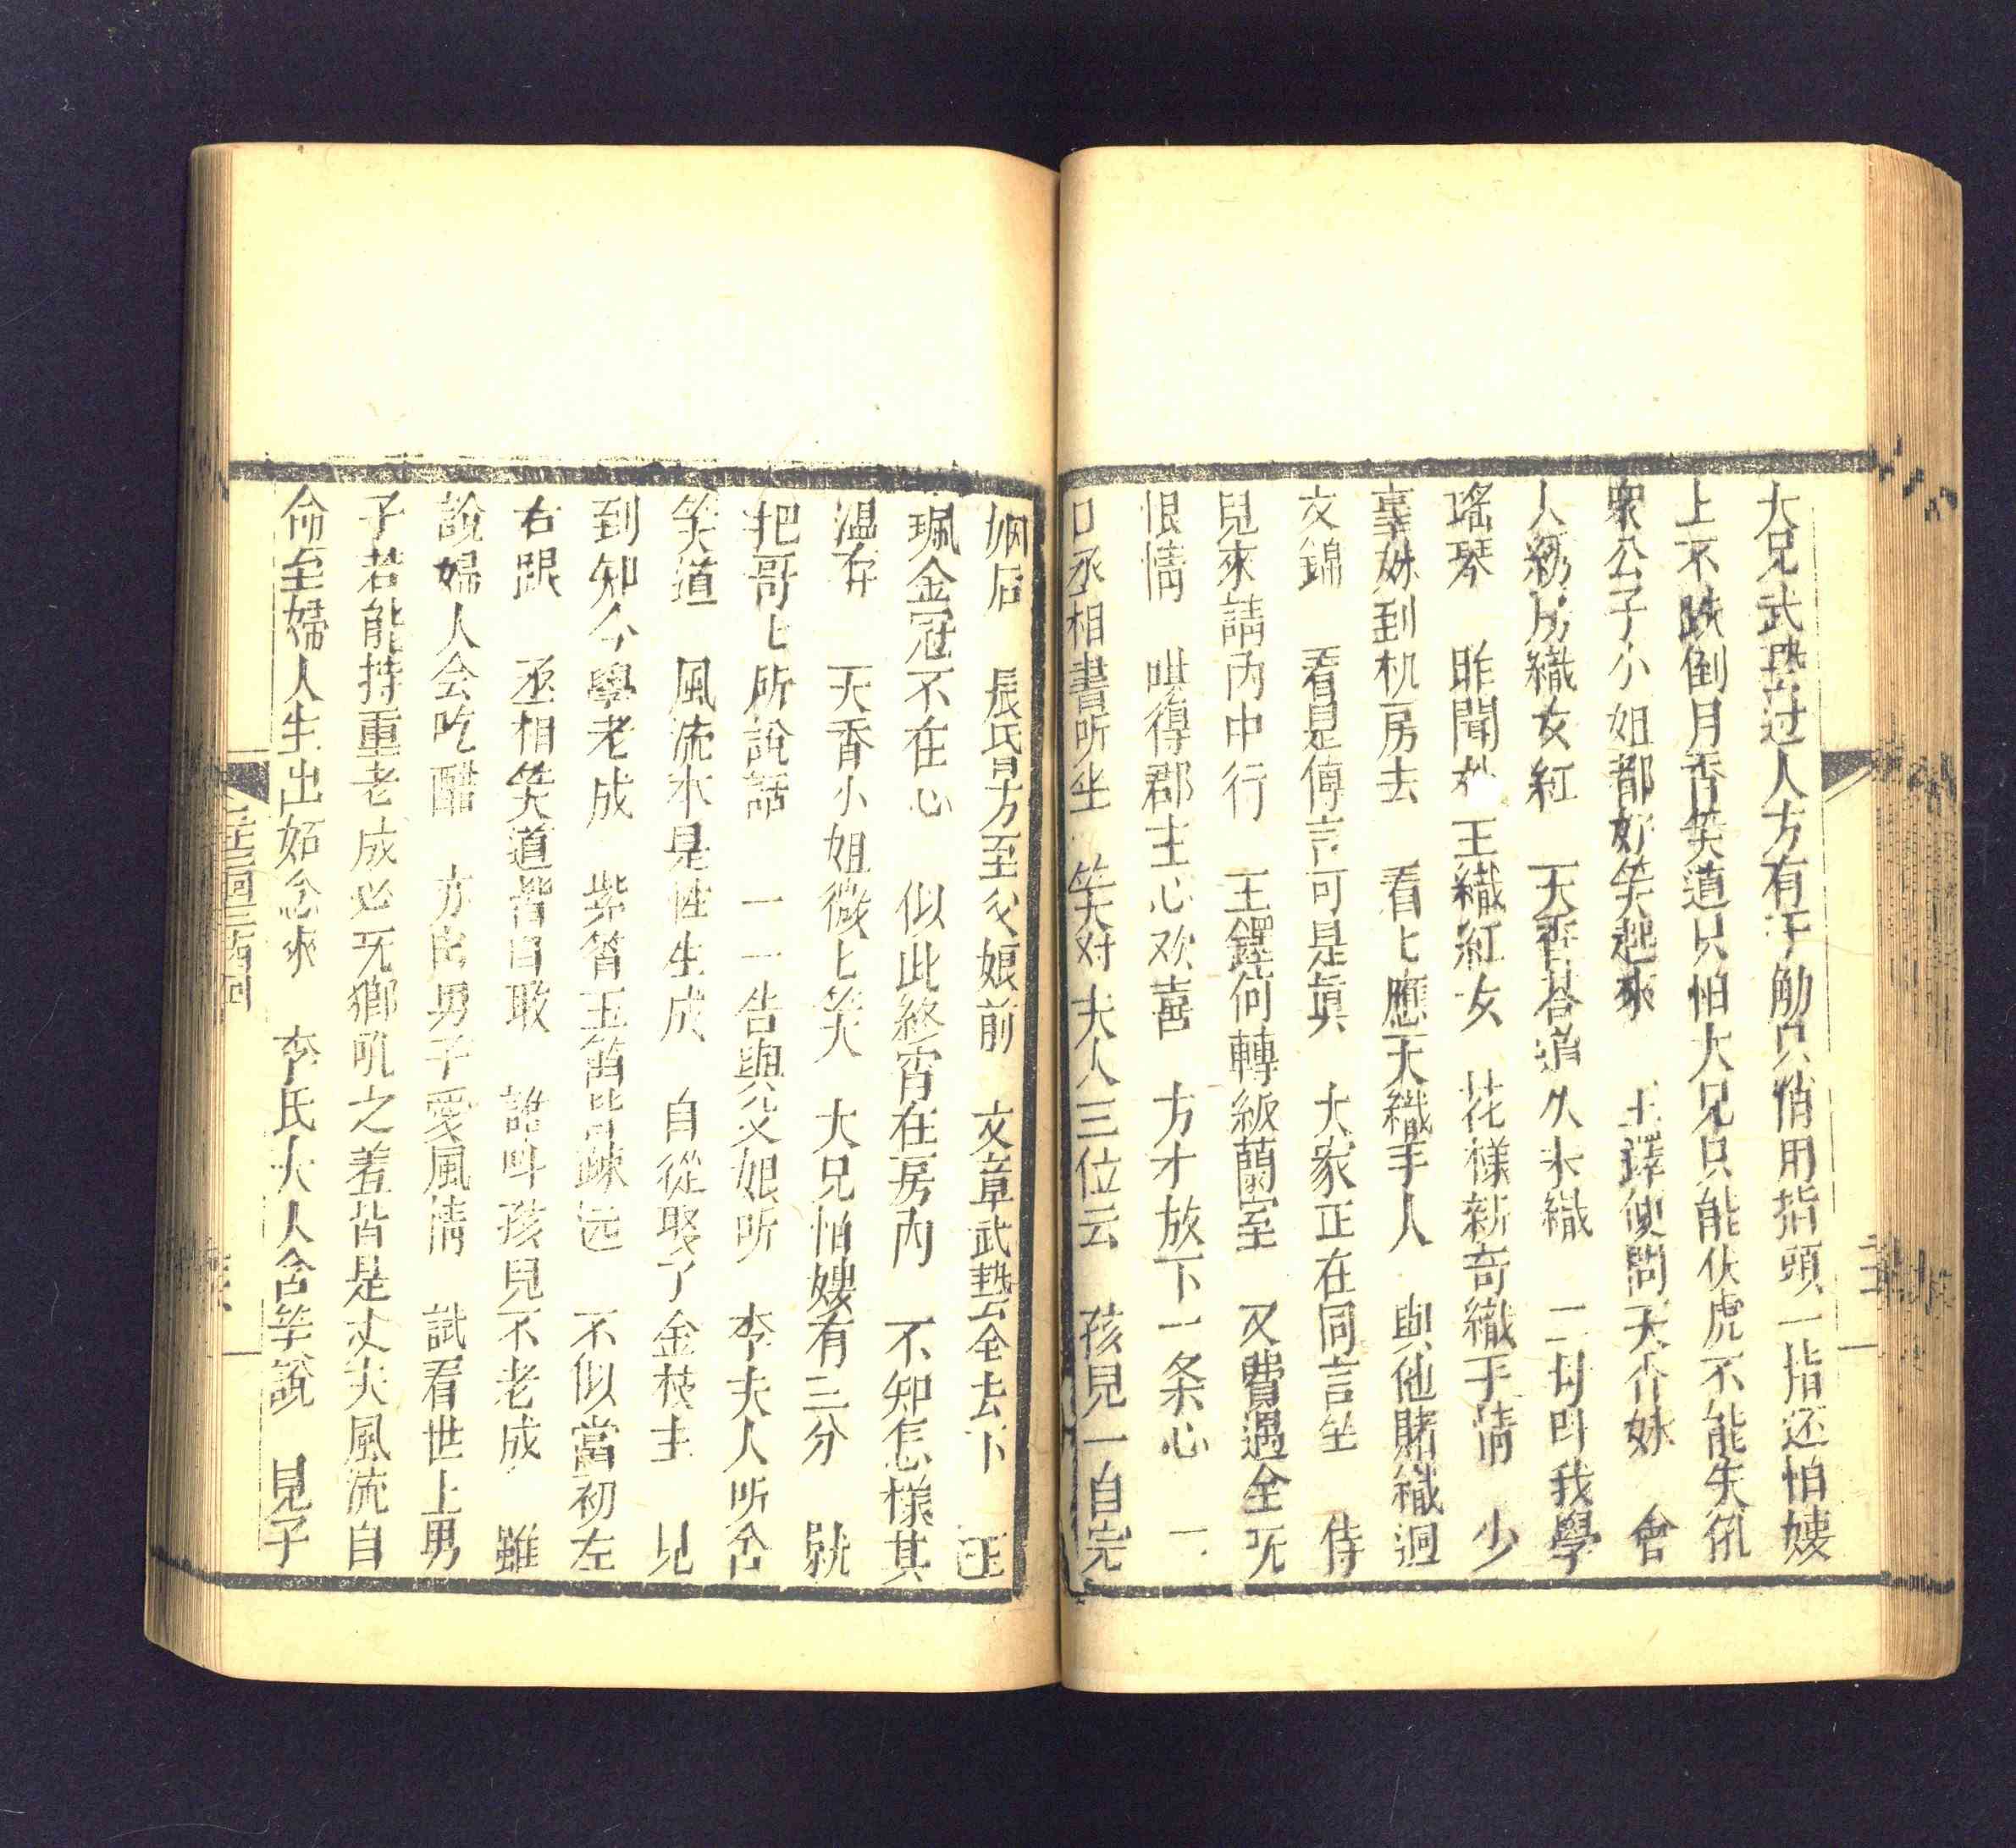 大兄武藝过人方有千觔只消用指頭一指还怕嫂
上不跌倒月香笑道只怕大兄只能伏虎不能矢㹧
衆公子小姐都好笑起來　王鐸便問天香妹　會
人紡房織女紅　天香荅道久未織　二母叫我學
瑤琴　昨聞　王織紅女　花樣新奇織手情　少
辜妹到机房去　看匕應天織手人　與他賭織迴
文錦　看是傳言可是真　大家正在同言坐　侍
見來請内中行　王鐸何轉緞蘭室　又費遇全旡
恨情　哄得郡主心欢喜　方才放下一条心　一
口丞相書听坐　笑对夫人三位云　孩見一自完
姻后　晨昏方至父娘前　文章武藝全去下　玉
珮金冠不在心　似此終宵在房內　不知怎樣其
温存　天香小姐微匕笑　大兄怕嫂有三分　就
把哥匕所說話　一一告與父娘听　李夫人听含
笑道　風流本是性生成　自從娶了金枝主　見
到知今學老成　紫簫玉笛皆疎远　不似當初左
右跟　丞相笑道皆自取　誰叫孩見不老成　雖
說婦人会吃醋　亦由男子愛風情　試看世上男
子若能持重老成必旡獅吼之羞皆是丈夫風流自
命至婦人生出妬念來　李氏夫人含笑說　見子